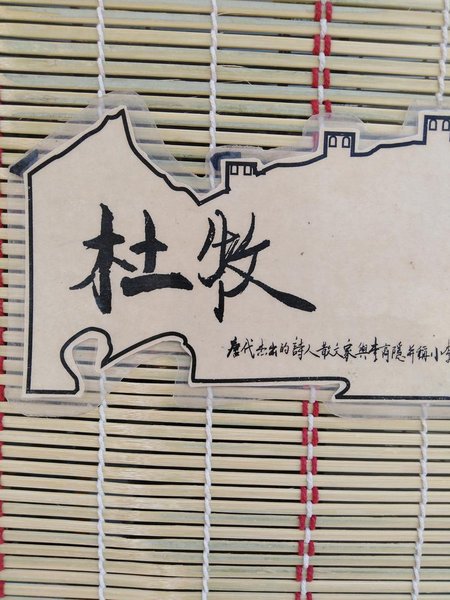 杜牧
唐代杰出的詩人散文家與李商隱并稱小李